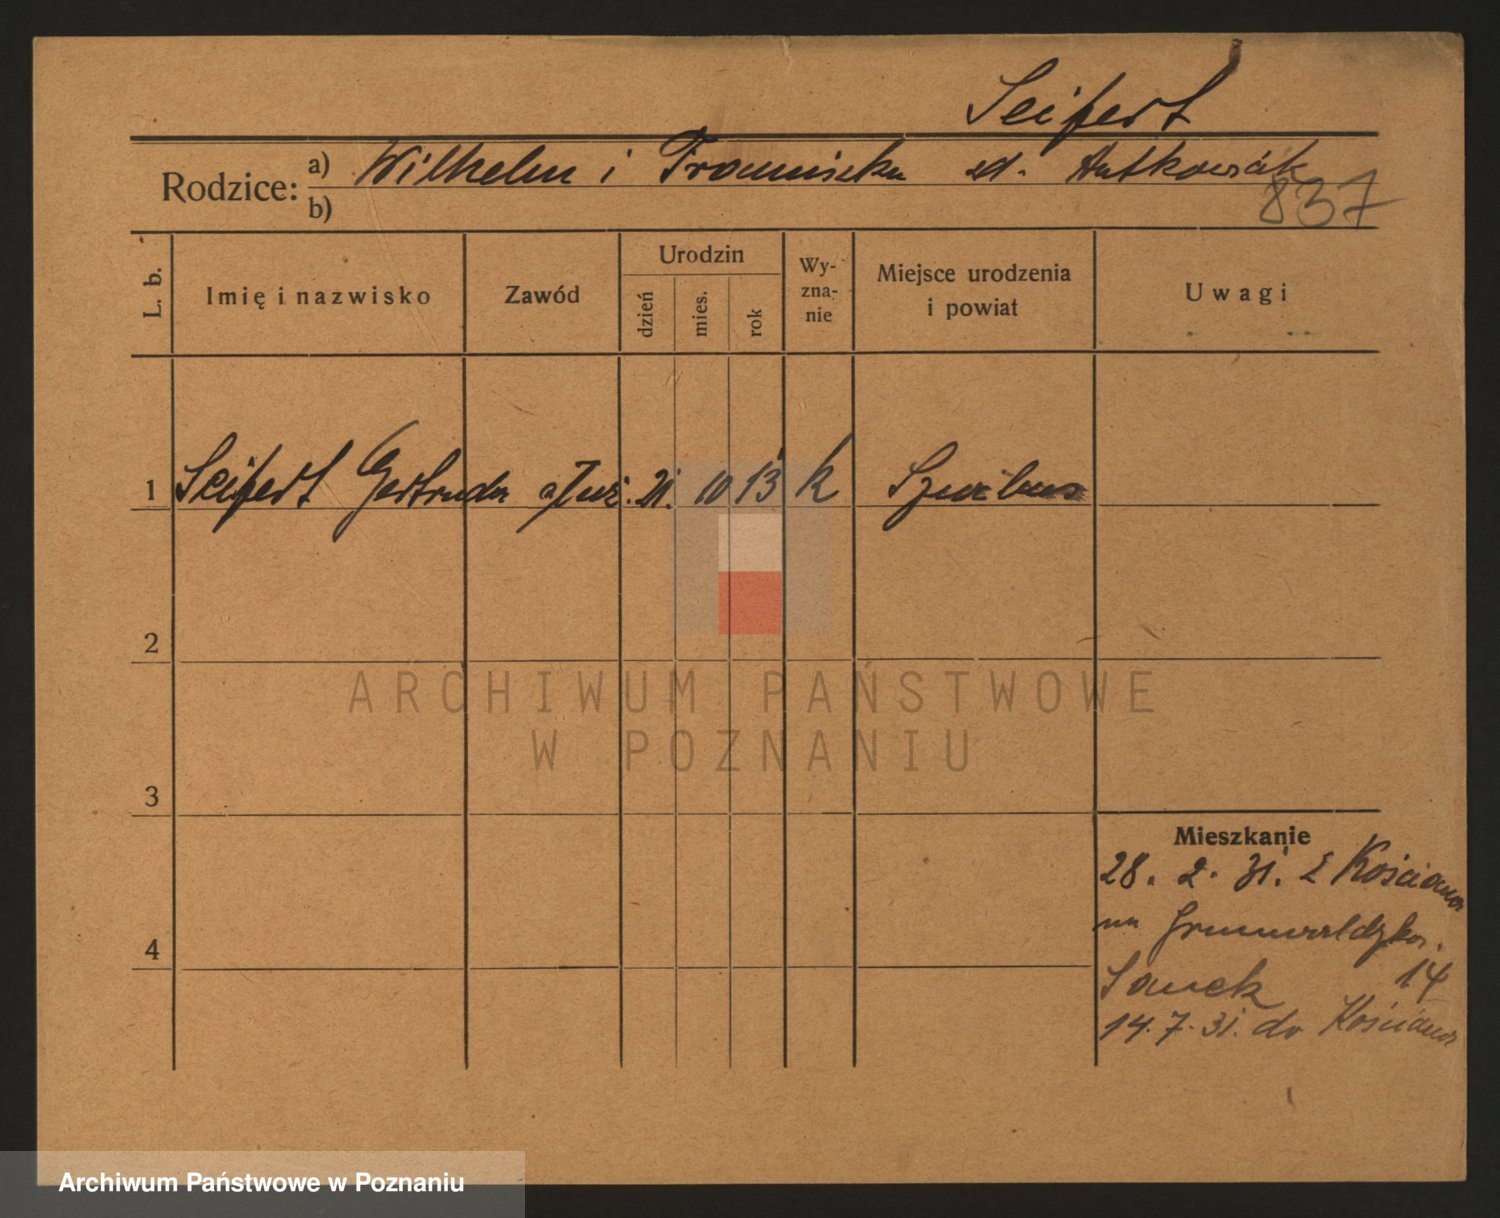 Seifert
Rodzice: a) Wilhelm i Franciszka zd. Antkowiak
b)
837
L. b.
Imię i nazwisko
Zawód
Urodzin
dzień
mies.
rok
Wy-
zna-
nie
Miejsce urodzenia
i powiat
Uwagi
1 Seifert Gertruda służ. 21. 10 13 k
2
ARCHIWUM PAŃSTWOWE
W POZNANIU
3
Mieszkanie
28. 2. 31. z Kościana
na Grunwaldzka.
14
4
14. 7. 31. do Kościana
Archiwum Państwowe w Poznaniu